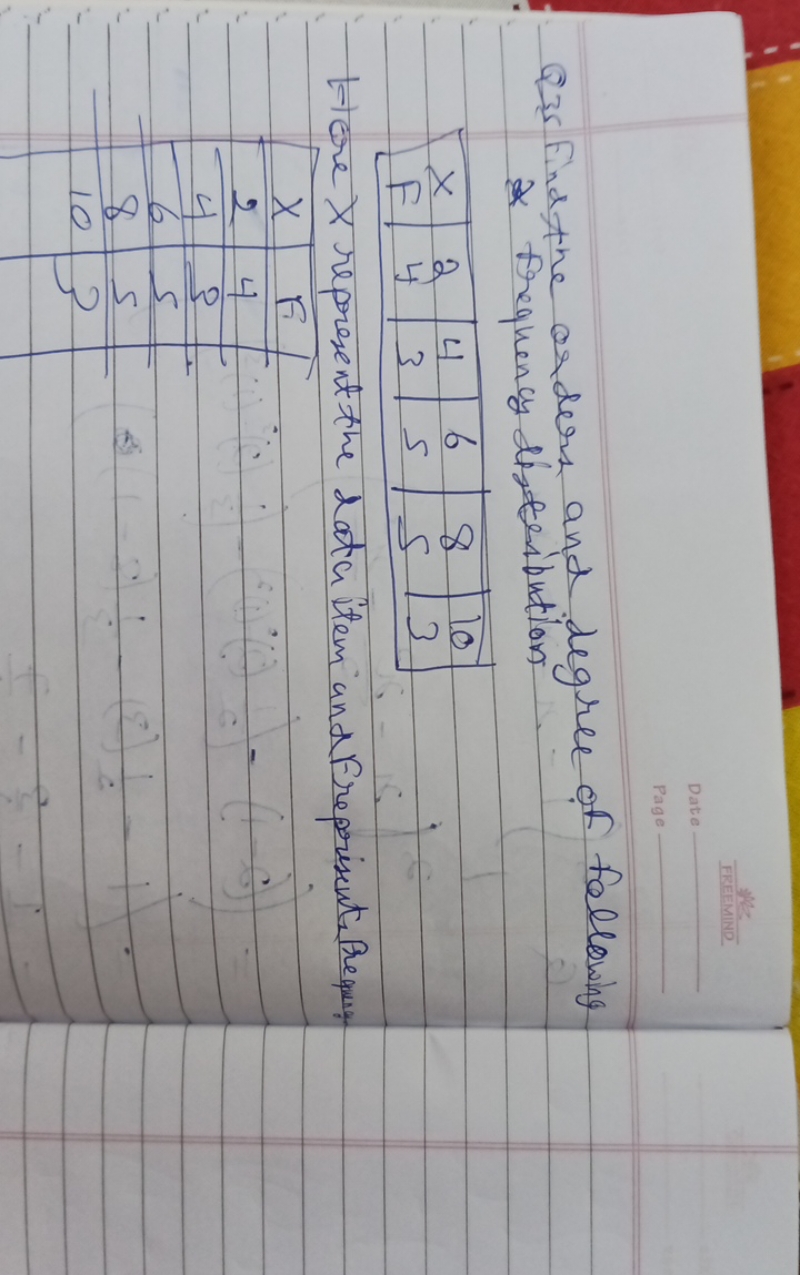 FREEMIND
Date
Page
Q35 Find the orders and degree of following
frequency distribution
X 2 4 6 8 10
F 4 3 5 5 3
Here X represent the data item and F represents
X F
2 4
4 3
6 5
8 5
10 3